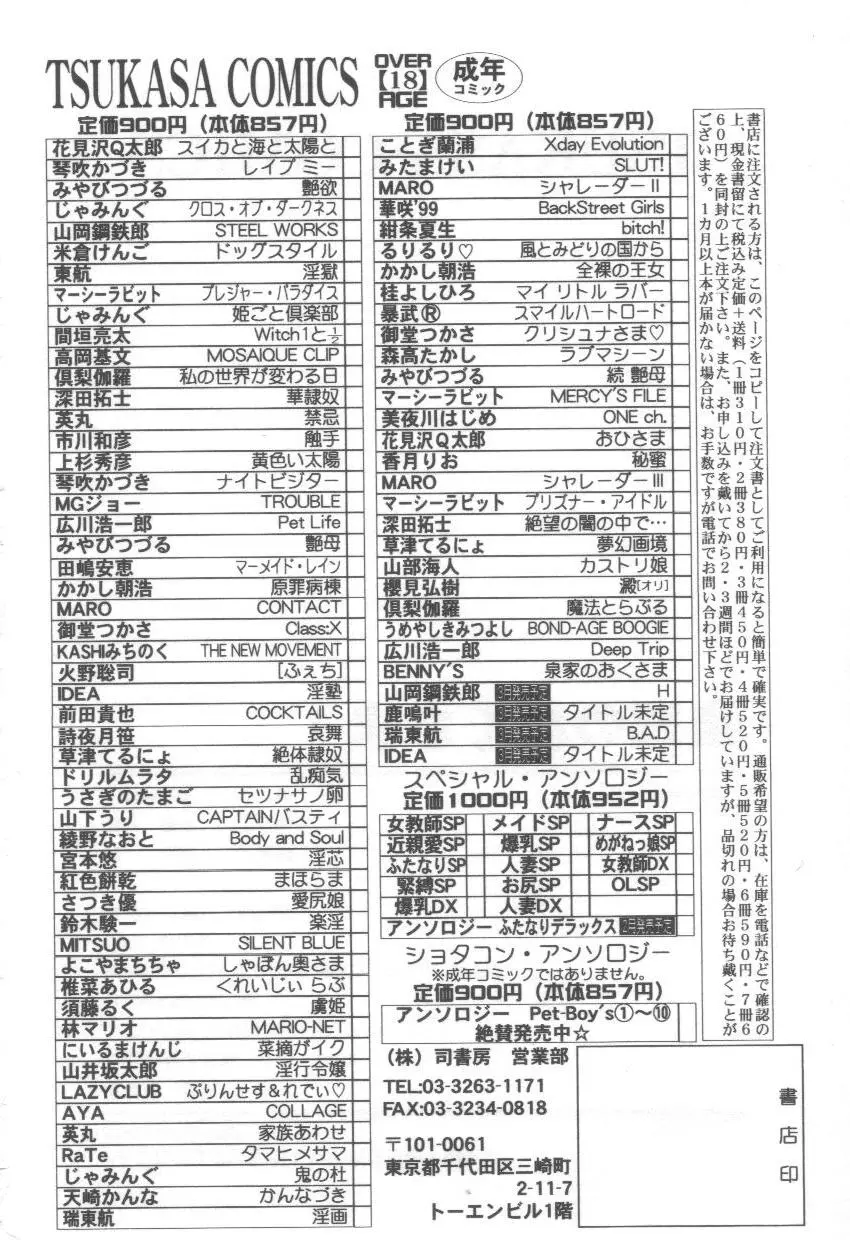 TSUKASA COMICS
OVER
【18】
AGE
成年
コミック
定価900円（本体857円）
花見沢Q太郎 スイカと海と太陽と
琴吹かづき レイプ ミー
みやびつづる 艶欲
じゃみんぐ クロス・オブ・ダークネス
山岡鋼鉄郎 STEEL WORKS
米倉けんご ドッグスタイル
東航 淫獄
マーシーラビット プレジャー・パラダイス
じゃみんぐ 姫ごと倶楽部
間垣亮太 Witch1と½
高岡基文 MOSAIQUE CLIP
倶梨伽羅 私の世界が変わる日
深田拓士 華隷奴
英丸 禁忌
市川和彦 触手
上杉秀彦 黄色い太陽
琴吹かづき ナイトビジター
MGジョー TROUBLE
広川浩一郎 Pet Life
みやびつづる 艶母
田嶋安恵 マーメイド・レイン
かかし朝浩 原罪病棟
MARO CONTACT
御堂つかさ Class:X
KASHIみちのく THE NEW MOVEMENT
火野聡司 [ふぇち]
IDEA 淫塾
前田貴也 COCKTAILS
詩夜月笹 哀舞
草津てるにょ 絶体隷奴
ドリルムラタ 乱痴気
うさぎのたまご セツナサノ卵
山下うり CAPTAINバスティ
綾野なおと Body and Soul
宮本悠 淫芯
紅色餅乾 まほらま
さつき優 愛尻娘
鈴木験一 楽淫
MITSUO SILENT BLUE
よこやまちちゃ しゃぼん奥さま
椎菜あひる くれいじぃ らぶ
須藤るく 虜姫
林マリオ MARIO-NET
にいるまけんじ 菜摘がイク
山井坂太郎 淫行令嬢
LAZYCLUB ぷりんせす&れでぃ♡
AYA COLLAGE
英丸 家族あわせ
RaTe タマヒメサマ
じゃみんぐ 鬼の杜
天崎かんな かんなづき
瑞東航 淫画
定価900円（本体857円）
ことぎ蘭浦 Xday Evolution
みたまけい SLUT!
MARO シャレーダーⅡ
華咲'99 BackStreet Girls
紺条夏生 bitch!
るりるり♡ 風とみどりの国から
かかし朝浩 全裸の王女
桂よしひろ マイ リトル ラバー
暴武Ⓡ スマイルハートロード
御堂つかさ クリシュナさま♡
森高たかし ラブマシーン
みやびつづる 続 艶母
マーシーラビット MERCY'S FILE
美夜川はじめ ONE ch.
花見沢Q太郎 おひさま
香月りお 秘蜜
MARO シャレーダーⅢ
マーシーラビット プリズナー・アイドル
深田拓士 絶望の闇の中で…
草津てるにょ 夢幻画境
山部海人 カストリ娘
櫻見弘樹 澱[オリ]
倶梨伽羅 魔法とらぶる
うめやしきみつよし BOND-AGE BOOGIE
広川浩一郎 Deep Trip
BENNY'S 泉家のおくさま
山岡鋼鉄郎 H
鹿鳴叶 タイトル未定
瑞東航 B.A.D
IDEA タイトル未定
スペシャル・アンソロジー
定価1000円（本体952円）
女教師SP メイドSP ナースSP
近親愛SP 爆乳SP めがねっ娘SP
ふたなりSP 人妻SP 女教師DX
緊縛SP お尻SP OLSP
爆乳DX 人妻DX
アンソロジー ふたなりデラックス 2月発売予定
ショタコン・アンソロジー
※成年コミックではありません。
定価900円（本体857円）
アンソロジー Pet-Boy's①～⑩
絶賛発売中☆
（株）司書房 営業部
TEL:03-3263-1171
FAX:03-3234-0818
〒101-0061
東京都千代田区三崎町
2-11-7
トーエンビル1階
書店印
書店に注文される方は、このページをコピーして注文書としてご利用になると簡単で確実です。通販希望の方は、在庫を電話などで確認の
上、現金書留にて税込み定価＋送料（1冊310円・2冊380円・3冊450円・4冊520円・5冊520円・6冊590円・7冊6
60円）を同封の上ご注文下さい。また、お申し込みを戴いてから2・3週間ほどでお届けしていますが、品切れの場合お待ち戴くことが
ございます。1カ月以上本が届かない場合は、お手数ですが電話でお問い合わせ下さい。